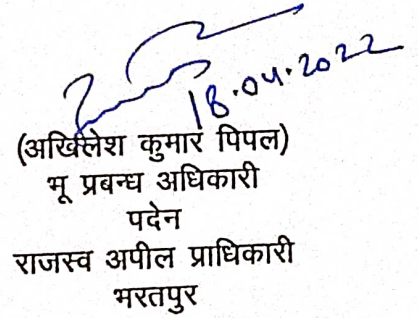 18.04.2022
(अखिलेश कुमार पिपल)
भू प्रबन्ध अधिकारी
पदेन
राजस्व अपील प्राधिकारी
भरतपुर